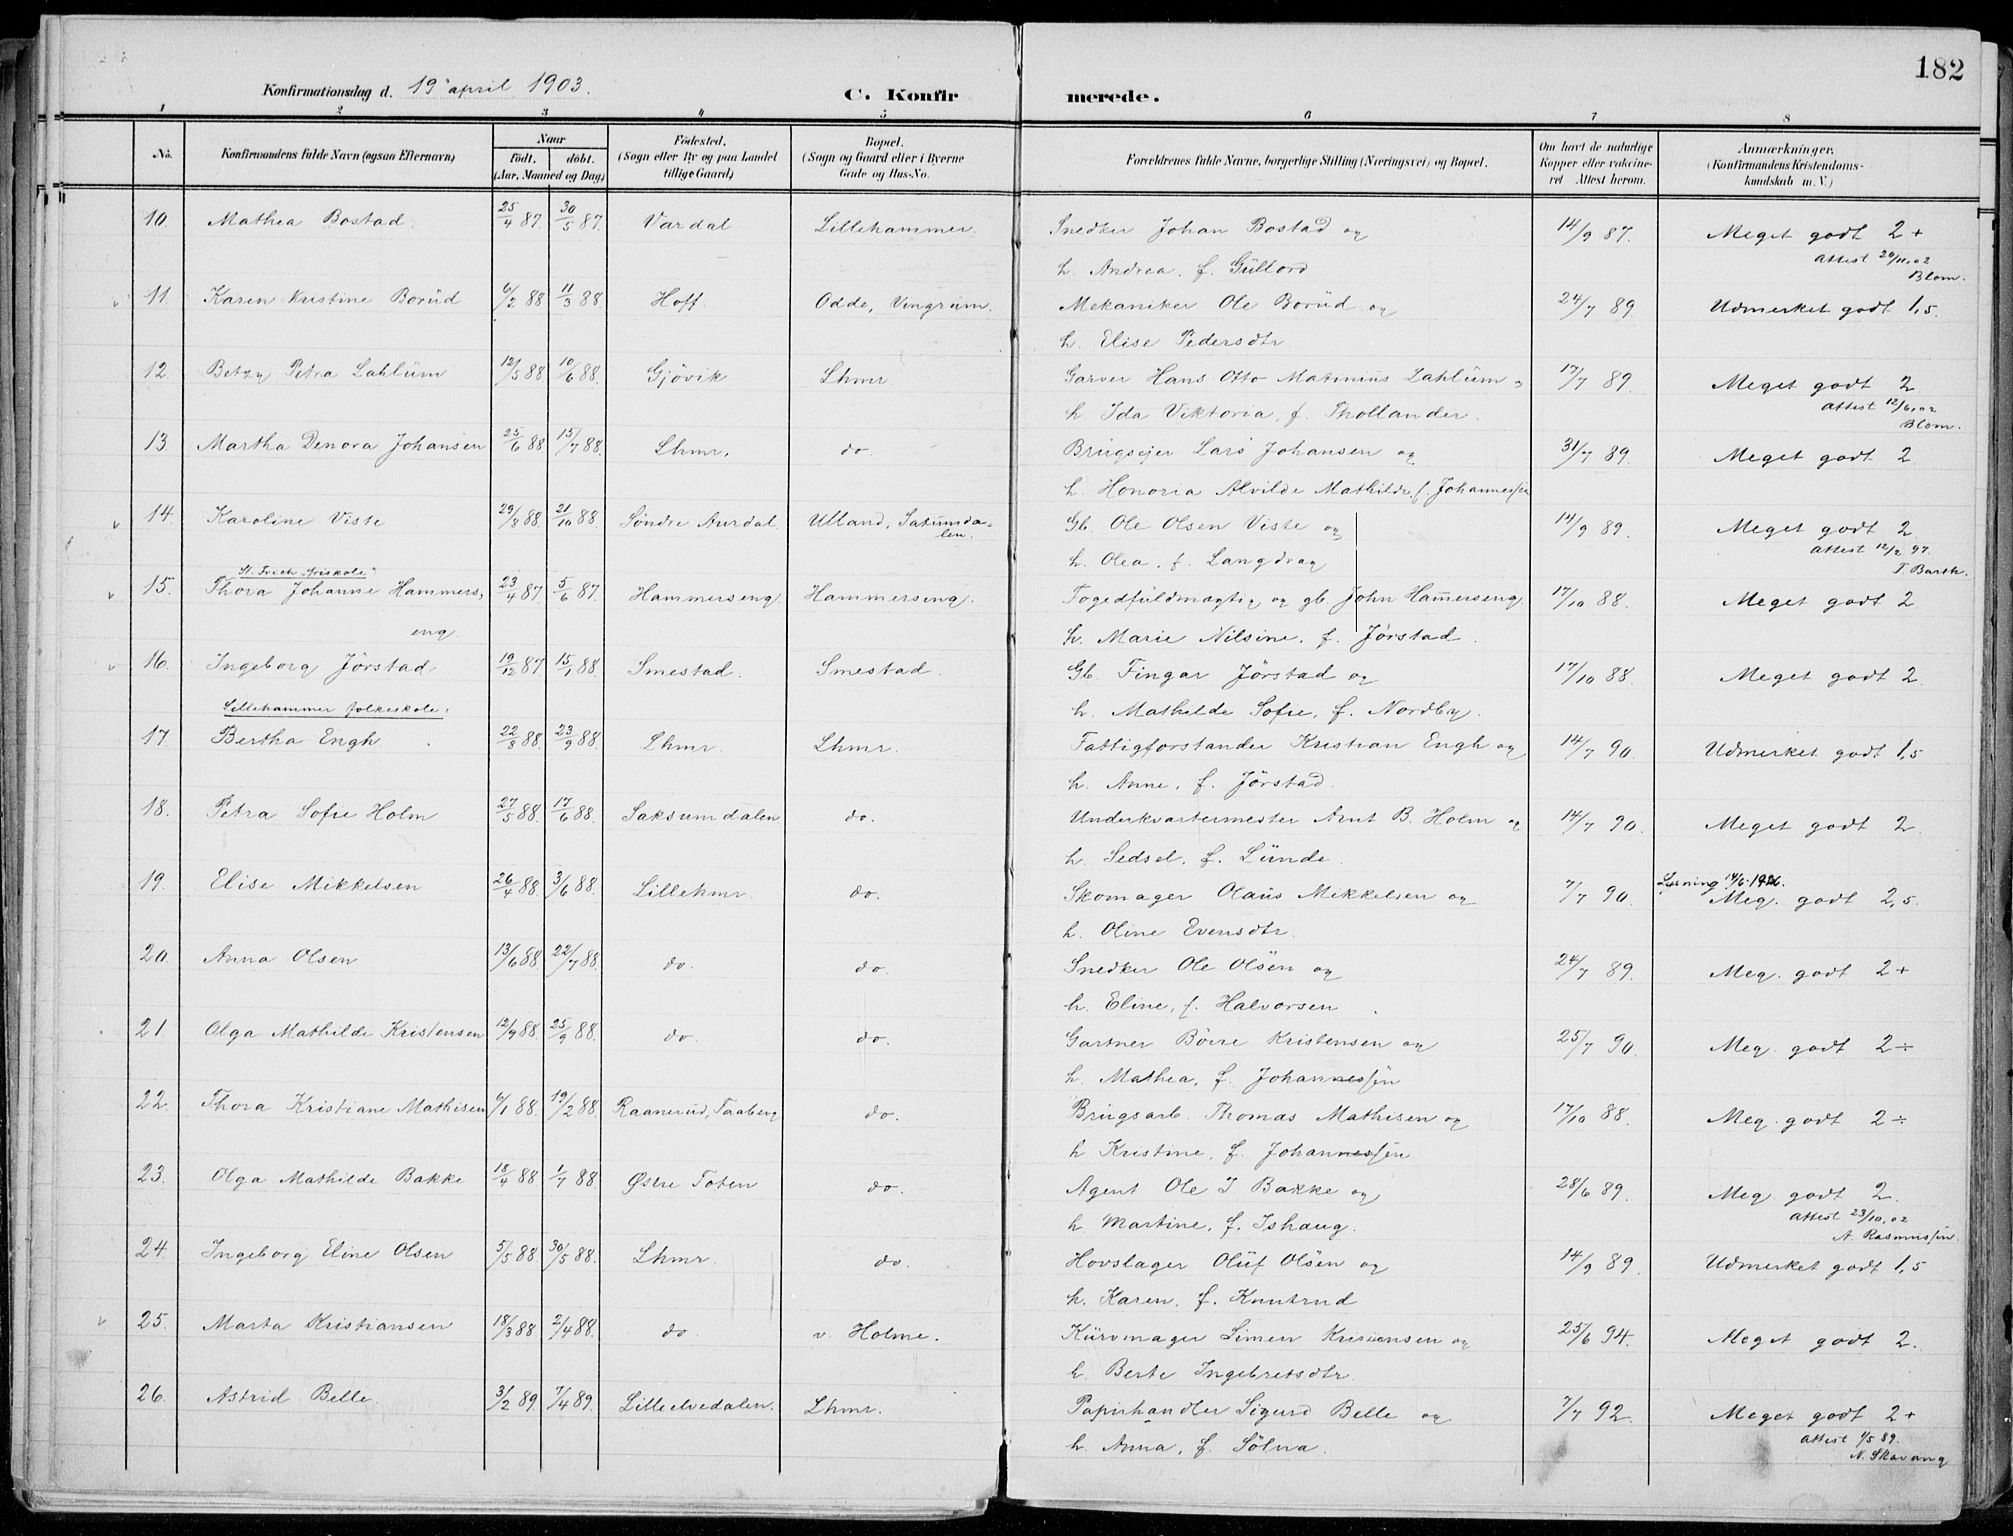 182
Konfirmationsdag d. 19 april 1903.
C. Konfirmerede.
1 2 3 4 5 6 7 8
No. Konfirmandens fulde Navn (ogsaa Efternavn) Naar født. døbt. (Aar, Maaned og Dag) Fødested. (Sogn eller By og paa Landet tillige Gaard) Bopæl. (Sogn og Gaard eller i Byerne Gade og Hus-No. Forældrenes fulde Navne, borgerlige Stilling (Næringsvei) og Bopæl. Om havt de naturlige Kopper eller vakcineret Attest herom. Anmærkninger. (Konfirmandens Kristendomskundskab m. V.)
10. Mathea Bostad. 25/4 87. 30/5 87. Vardal Lillehammer. Snedker Johan Bostad og 14/9 87. Meget godt 2+
h. Andrea, f. Güllord attest 20/11.02
Blom.
11. Karen Kristine Borüd 6/2 88 11/3 88. Hoff. Odde, Vingrum. Mekaniker Ole Borüd og 24/7 89 Udmerket godt 1,5.
h. Elise Pedersdtr.
12. Betzy Petra Lahlüm 12/5 88 10/6 88. Gjövik Lhmr Garver Hans Otto Matinius Lahlüm o 17/7 89. Meget godt 2
h. Ida Viktoria, f. Thollander. attest 12/6.02
Blom.
13. Martha Denora Johansen 25/6 88 15/7 88. Lhmr. do. Brügseier Lars Johansen og 31/7 89. Meget godt 2
h. Honoria Alvilde Mathilde f. Johannessen
14. Karoline Viste 29/8 88. 21/10 88. Søndre Aurdal. Ulland, Saxumda-
len. Gb. Ole Olsen Viste og 14/9 89. Meget godt 2
h. Olea, f. Langdrag attest 12/2 97.
T. Barth.
15. Thora Johanne Hammers-
eng. 23/4 87. 5/6 87. Hammerseng. Hammerseng. Fogedfuldmægtig og gb. John Hamerseng. 17/10 88. Meget godt 2
h. Marie Nilsine, f. Jörstad.
16. Ingeborg Jörstad 19/12 87 15/1 88. Smestad. Smestad. Gb. Fingar Jörstad og 17/10 88. Meget godt 2.
h. Mathilde Sofie, f. Nordby.
Lillehammer folkeskole.
17. Bertha Engh. 22/8 88. 23/9 88. Lhmr. Lhmr. Fattigforstander Kristian Engh og 14/7 90. Udmerket godt 1,5
h. Anne, f. Jörstad.
18. Petra Sofie Holm 27/5 88. 17/6 88. Saksumdalen do. Underkvartermester Arnt B. Holm og 14/7 90. Meget godt 2.
h. Sedsel, f. Lünde.
19. Elise Mikkelsen 26/4 88 3/6 88. Lillehmr. do. Skomager Olaus Mikkelsen og 7/7 90. Meg. godt 2,5.
h. Oline Evensdtr.
20. Anna Olsen 13/6 88. 22/7 88. do. do. Snedker Ole Olsen og 24/7 89. Meg. godt 2+
h. Eline, f. Halvorsen
21. Olga Mathilde Kristensen 12/9 88. 25/9 88. do. do. Gartner Börre Kristensen og 25/7 90. Meg. godt 2÷
h. Mathea, f. Johannessen
22. Thora Kristiane Mathisen 6/1 88. 19/2 88. Raanerud, Faaberg do. Brügsarb. Thomas Mathisen og 17/10 88. Meg. godt 2÷
h Kristine, f. Johannessen
23. Olga Mathilde Bakke 18/4 88 1/7 88 Østre Toten do. Agent Ole J Bakke og 28/6 89. Meg. godt 2.
h Martine, f. Ishaug. attest 23/10.02
A. Rasmussen.
24. Ingeborg Eline Olsen 5/5 88. 30/5 88. Lhmr. do. Hovslager Olüf Olsen og 14/9 89. Udmerket godt 1,5
h. Karen, f. Knutrud
25. Marta Kristiansen 18/3 88 2/4 88. do. v. Holme. Kürvmager Simen Kristiansen og 25/6 94. Meget godt 2.
h. Berte Ingebretsdtr.
26. Astrid Belle. 3/2 89. 7/4 89. Lilleelvedalen. Lhmr. Papirhandler Sigurd Belle og 7/7 92. Meget godt 2+
h. Anna, f. Sölna. attest 1/5 89.
N. Skavang